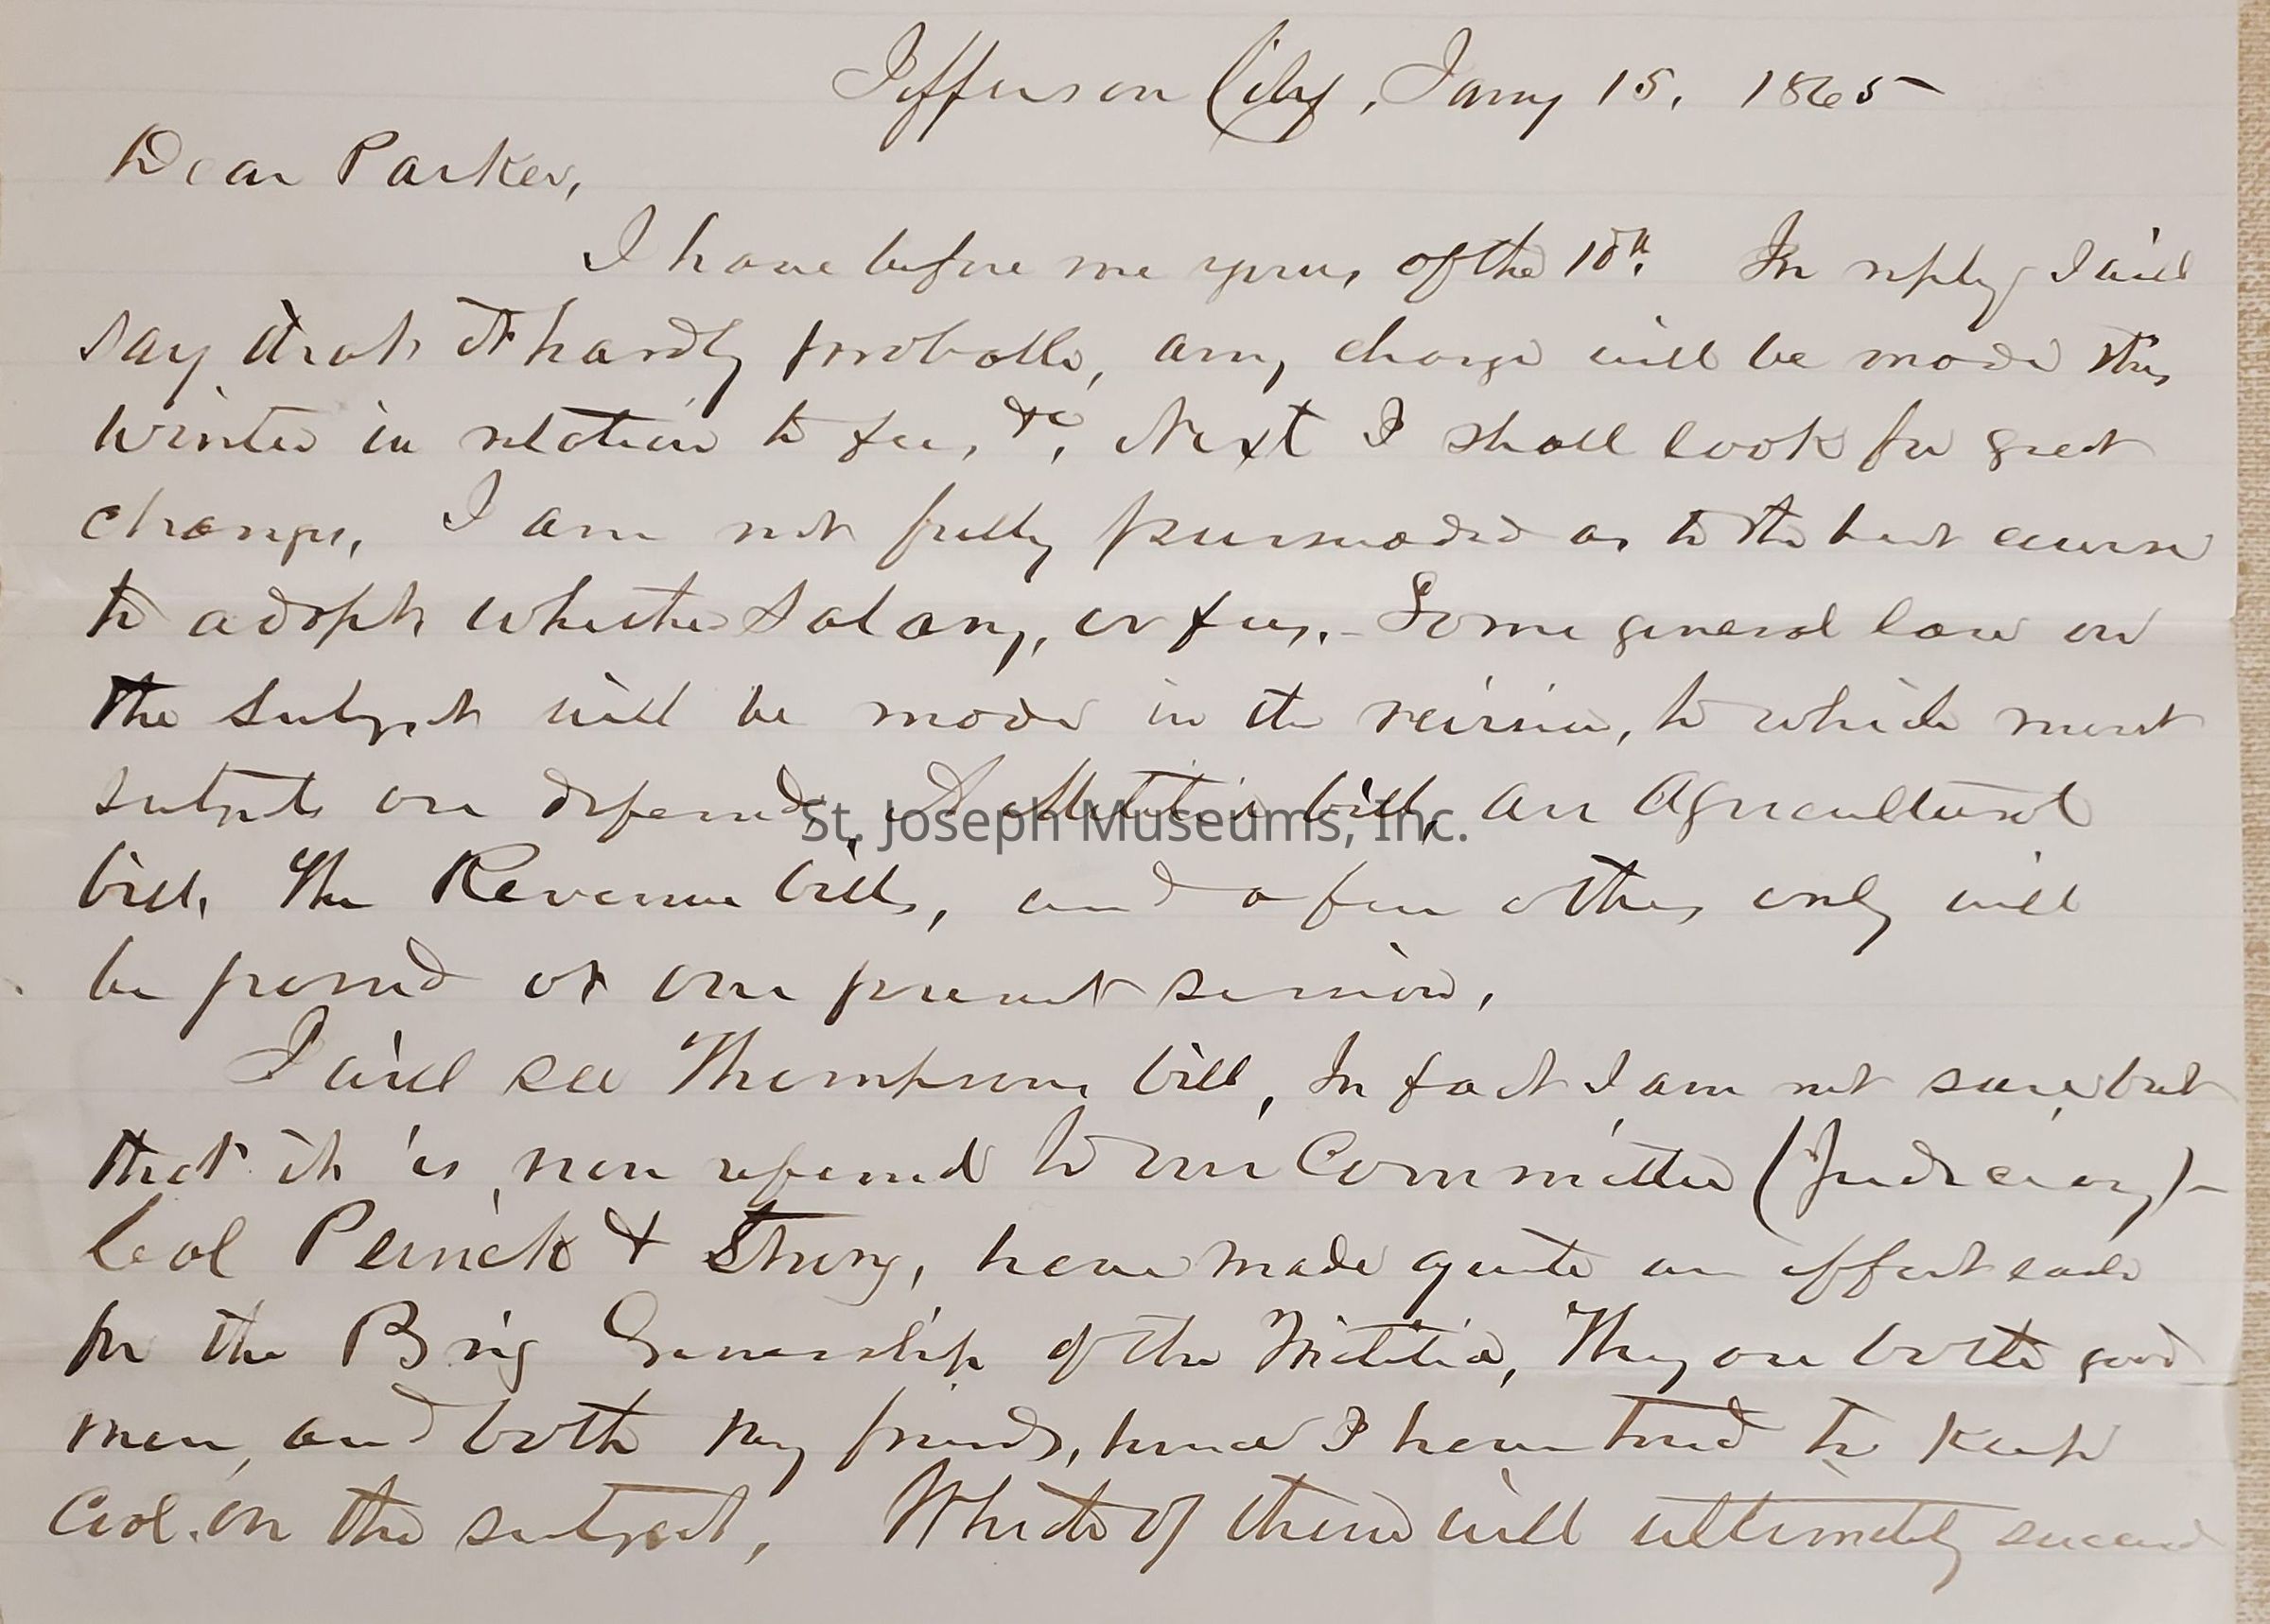 Jefferson City, Jany 15, 1865
Dear Parker,
I have before me yours of the 10th. In reply I will
say that it hardly probable, any change will be made this
winter in relation to fees, &c. Next I shall look for great
changes, I am not fully pursuaded as to the best course
to adopt whether Salary, or fees. - Some general law on
the subject will be made in the revision, to which most
subjects are deferred, A Militia bill, an Agricultural
bill, The Revenue bills, and a few others only will
be passed at our present session,
I will see Thompsons bill, In fact I am not sure, but
that it is now referred to our Committee (Judiciary) -
Col Penick & Strong, have made quite an effort each
for the Brig Generalship of the Militia, They are both good
men, and both my friends, hence I have tried to keep
cool on the subject, Which of them will ultimately succeed
St. Joseph Museums, Inc.